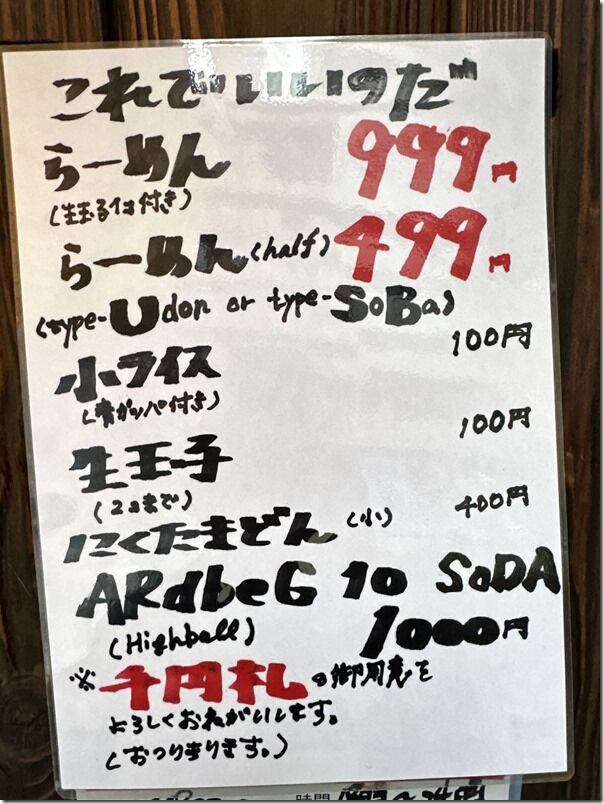 これでいいのだ
らーめん 999円
(生玉子1コ付き)
らーめん(half) 499円
(type-Udon or type-SoBa)
小ライス 100円
(青カッパ付き)
生玉子 100円
(2コまで)
にくたまどん(小) 400円
ARdbeG 10 SoDA
(Highball) 1000円
※千円札の御用意を
よろしくおねがいします。
(おつりあります。)
時間